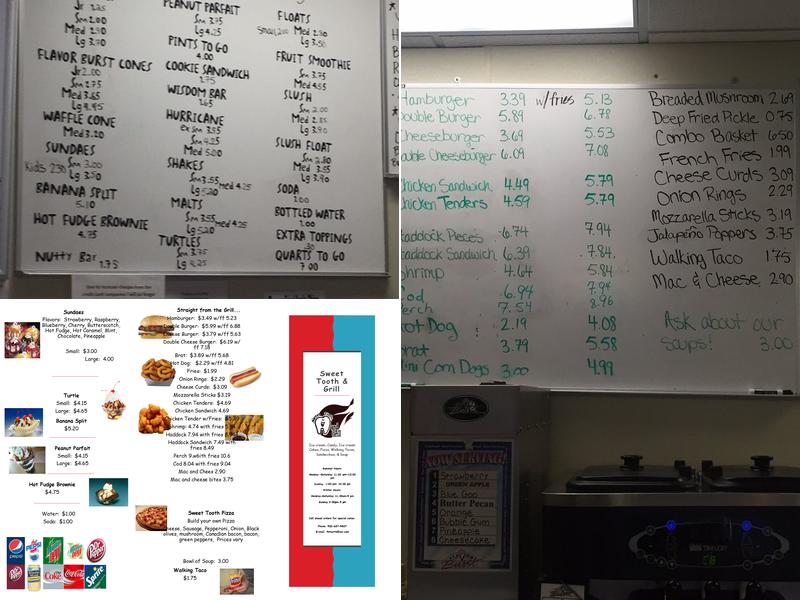 Jr 1.25
Sm 2.00
Med 2.90
Lg 3.90
FLAVOR BURST CONES
Jr 2.00
Sm 2.75
Med 3.65
Lg 4.45
WAFFLE CONE
Med 3.20
SUNDAES
Kids 2.50
Sm 3.00
Lg 3.50
BANANA SPLIT
5.10
HOT FUDGE BROWNIE
4.75
Nutty Bar 1.75
PEANUT PARFAIT
Sm 3.75
Lg 4.25
PINTS TO GO
4.00
COOKIE SANDWICH
2.75
WISDOM BAR
2.65
HURRICANE
ex sm 3.55
Sm 4.25
Med 5.00
SHAKES
Sm 3.55 Med 4.25
Lg 5.20
MALTS
Sm 3.55 Med 4.25
Lg 5.20
TURTLES
Sm 3.75
Lg 4.25
FLOATS
Small 2.00 Med 2.80
Lg 3.50
FRUIT SMOOTHIE
Sm 3.75
Med 4.55
SLUSH
Sm 2.00
Med 2.85
Lg 3.90
SLUSH FLOAT
Sm 2.80
Med 3.55
Lg 3.90
SODA
1.00
BOTTLED WATER
1.00
EXTRA TOPPINGS
.30
QUARTS TO GO
7.00
Hamburger 3.39 w/fries 5.13
Double Burger 5.89 6.78
Cheeseburger 3.69 5.53
Double Cheeseburger 6.09 7.08
Chicken Sandwich 4.49 5.79
Chicken Tenders 4.59 5.79
Haddock Pieces 6.74 7.94
Haddock Sandwich 6.39 7.84
Shrimp 4.64 5.84
Cod 6.94 7.94
Perch 7.54 8.96
Hot Dog 2.19 4.08
Brat 3.79 5.58
Mini Corn Dogs 3.00 4.99
Breaded Mushroom 2.69
Deep Fried Pickle 0.75
Combo Basket 6.50
French Fries 1.99
Cheese Curds 3.09
Onion Rings 2.29
Mozzarella Sticks 3.19
Jalapeño Poppers 3.75
Walking Taco 1.75
Mac & Cheese 2.90
Ask about our
soups! 3.00
NOW SERVING!
1 Strawberry
2 GREEN APPLE
3 Blue Goo
4 Butter Pecan
5 Orange
6 Bubble Gum
7 Pineapple
8 Cheesecake
Burst
TAYLOR
Sundaes
Flavors: Strawberry, Raspberry,
Blueberry, Cherry, Butterscotch,
Hot Fudge, Hot Caramel, Mint,
Chocolate, Pineapple
Small: $3.00
Large: 4.00
Turtle
Small: $4.15
Large: $4.65
Banana Split
$5.20
Peanut Parfait
Small: $4.15
Large: $4.65
Hot Fudge Brownie
$4.75
Water: $1.00
Soda: $1.00
pepsi
Dr Pepper
Coke
Coca-Cola
Sprite
Straight from the Grill...
Hamburger: $3.49 w/ff 5.23
Double Burger: $5.99 w/ff 6.88
Cheese Burger: $3.79 w/ff 5.63
Double Cheese Burger: $6.19 w/
ff 7.18
Brat: $3.89 w/ff 5.68
Hot Dog: $2.29 w/ff 4.81
Fries: $1.99
Onion Rings: $2.29
Cheese Curds: $3.09
Mozzarella Sticks $3.19
Chicken Tenders: $4.69
Chicken Sandwich 4.69
Chicken Tender w/Fries:
Shrimp: 4.74 with fries
Haddock 7.94 with fries
Haddock Sandwich 7.49 with
fries 8.49
Perch 9.with fries 10.6
Cod 8.04 with fries 9.04
Mac and Chees 2.90
Mac and cheese bites 3.75
Sweet Tooth Pizza
Build your own Pizza
Cheese, Sausage, Pepperoni, Onion, Black
olives, mushroom, Canadian bacon, bacon,
green peppers, Prices vary
Bowl of Soup: 3.00
Walking Taco
$1.75
Sweet
Tooth &
Grill
Ice cream, Candy, Ice cream
Cakes, Pizza, Walking Tacos,
Sandwiches, & Soup
Summer Hours
Winter Hours
Call ahead orders for special cakes.